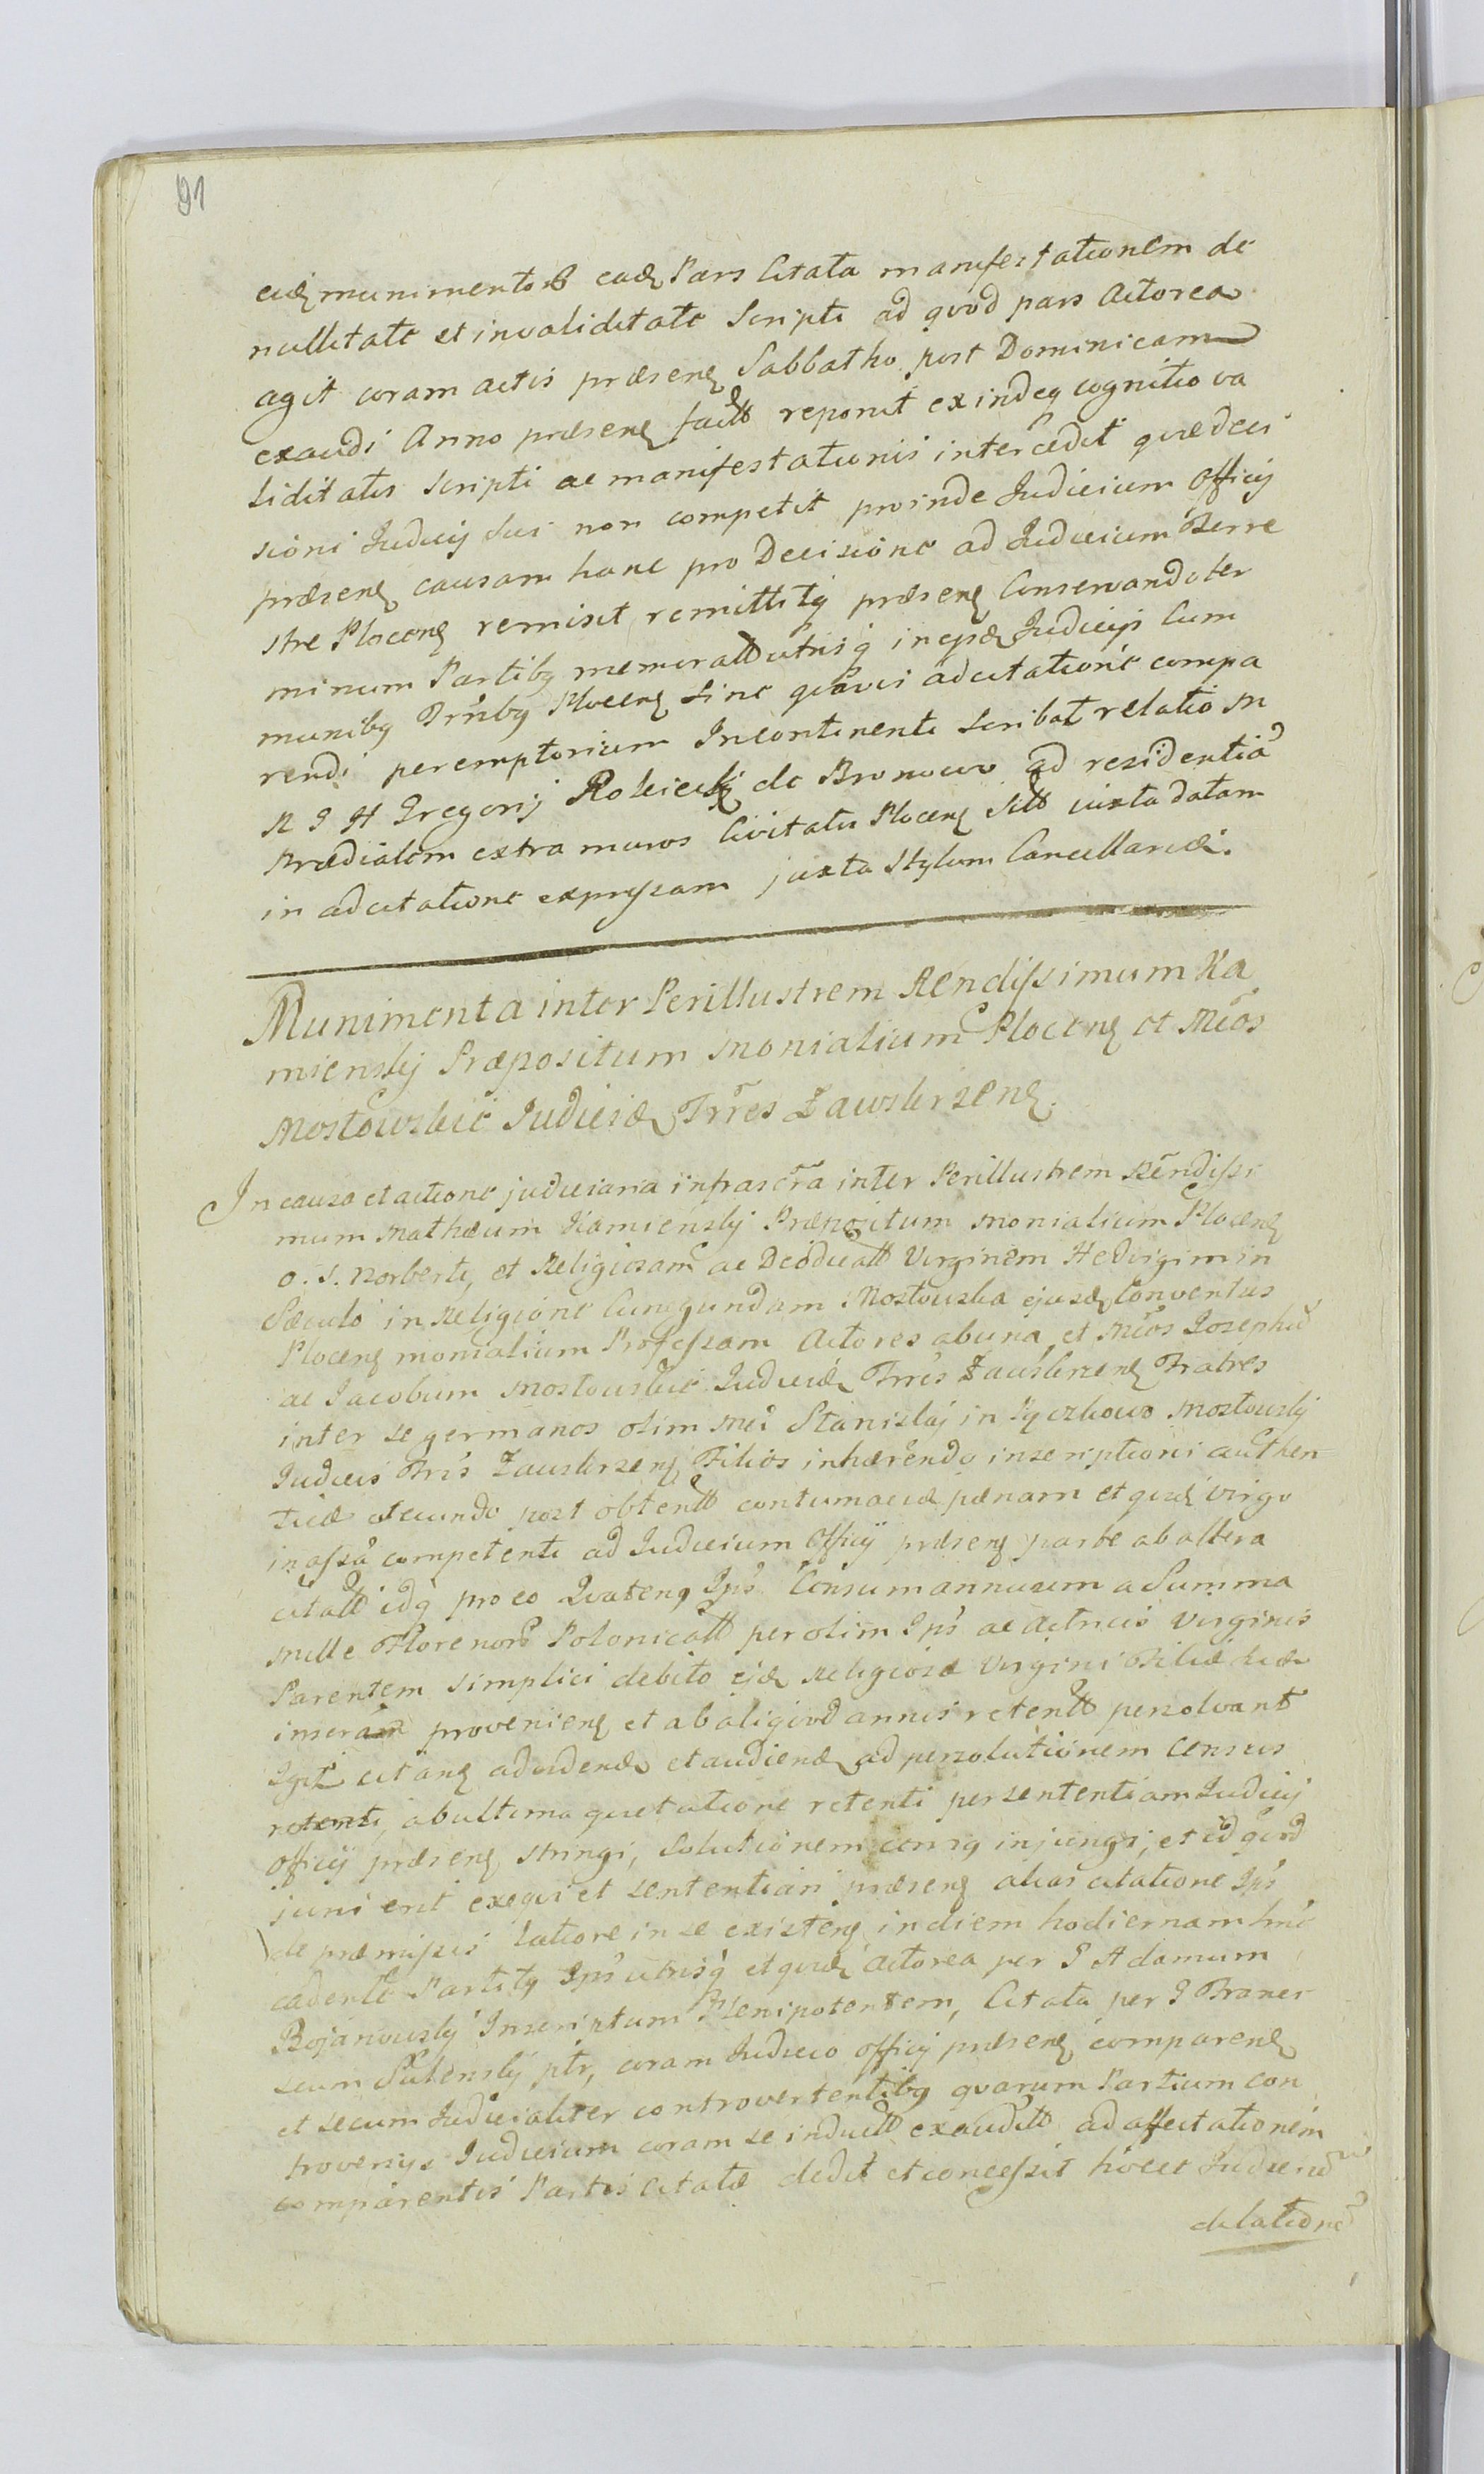 91
munimento eadę Pars Citata manifestationem de
nullitate et invaliditate Scripti ad qvod pars Actorea
agit coram actis præsenę Sabbatho post Dominicam
exaudi Anno præsenę reponit exindeq cognitio va
liditatis Scripti ac manifestationis intercedit quæ deci
sioni Judicij sui non competit proinde Judicium Officij
præsenę causam hanc pro Decisione ad Judicium Terre
stre Plocenę remisit remittitq præsenę Conservando ter
minum Partibq utrisq in Judicijs Cum
munibq Plocenę sine qvavis adcitatione compa
rendi peremptorium Incontinenti scribat relatio M
N G H Gregorij Rokicki de Bronowo ad residentiã
prædialem extra muros Civitatis Plocenę juxta datam
in adcitatione expressam juxta Stylum Cancellariæ.
Munimenta inter Perillustrem Rendissimum Ka
mienskij Præpositum Monialium Plocenę et Mcos
Mostowskie Judicidę Trres Zawskrzenę.
In causa et actione judiciaria infrascra inter Perillustrem Rendissi
mum Mathæum Kamienskij Præpositum Monialium Plocenę
O. S. Norberti, et Religiosam ac Virginem Hedvigim in
Sæculo in Religione Cunegundam Mostowska ejusdę Conventus
Plocenę monialium Professam Actores ab una et Mcos Josephũ
ac Jacobum Mostowskie Judicidę Trris Zawskrzenę Fratres
inter se germanos olim Mci Stanislaj in Mostowskij
Judicis Trris Zawskrzenę Filios inhærendo inscriptioni authen
ticæ secundo post contumaciæ pænam et
competenti ad Judicium Officij præsenę parte ab altera
idq pro eo Qvatenq Ips Censum annuum a Summa
Mille Florenorũ per olim Ips ac Actricis Virginis
Parentem simplici debito Religiosæ Virgini Filiæ suæ
provenienę et ab aliqvod annis persolvant
adsolutionem Census
retenti, ab ultima quietatione retenti per sententiam Judicij
Officij præsenę stringi, solutionem injungi, et id qvod
juris erit exeqvi et sententiam præsenę alias citatione Ips
de præmissis latiore in se existenę in diem hodiernam
cadente Partibq Ips utrisq Actorea per G Adamum
Bojanowskij Inscriptum Plenipotentem, Citata per G Franci
scum coram Judicio Officij præsenę comparenę
et secum Judicialiter controvertentibq qvarum Partium con
troversijs Judicium coram se ad affectationem
comparentis Partis Citatæ dedit et concessit hocce
dilationẽ